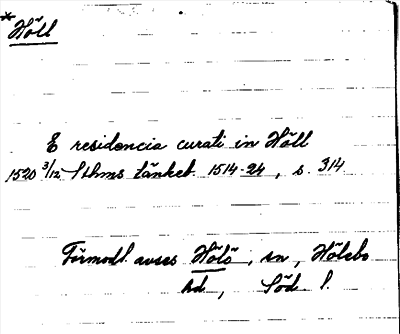 * Höll
E residencia curati in Höll
1520 3/12 Sthms tänkeb. 1514-24, s. 314
Förmodl. avses Hölö, sn, Hölebo
hd, Söd l.